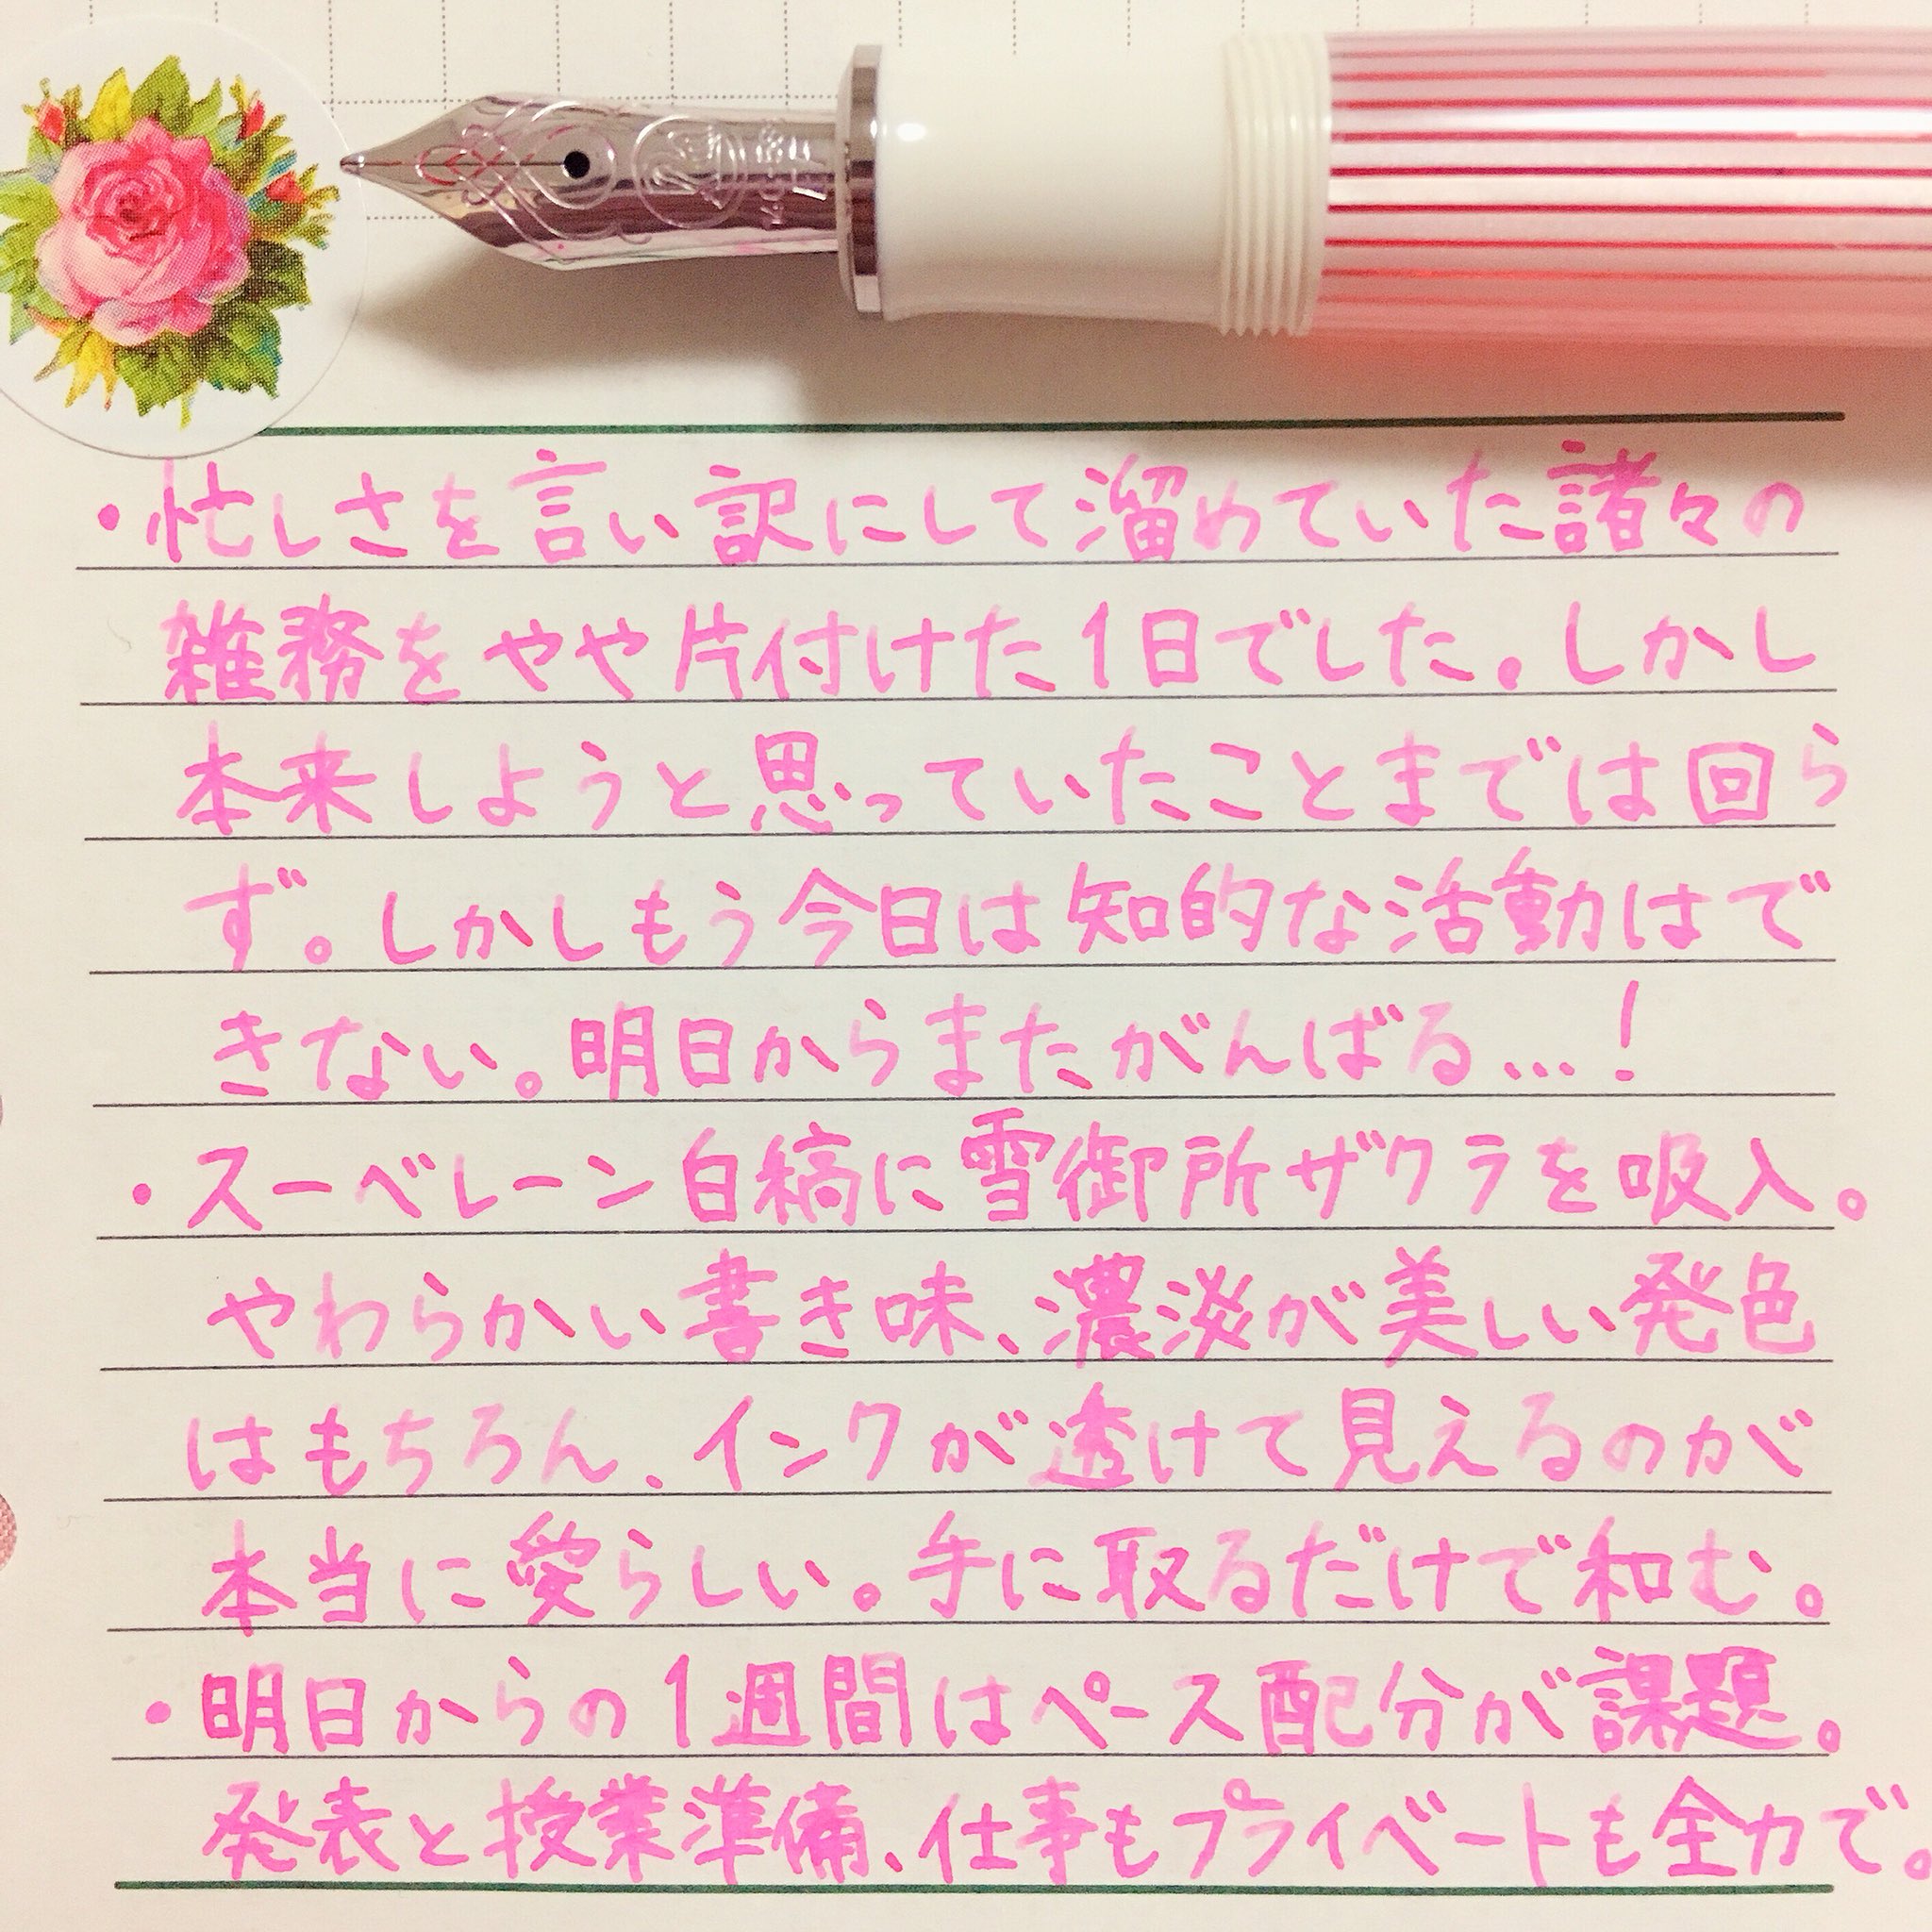 ・忙しさを言い訳にして溜めていた諸々の
雑務をやや片付けた1日でした。しかし
本来しようと思っていたことまでは回ら
ず。しかしもう今日は知的な活動はで
きない。明日からまたがんばる…!
・スーベレーン白縞に雪御所ザクラを吸入。
やわらかい書き味、濃淡が美しい発色
はもちろん、インクが透けて見えるのが
本当に愛らしい。手に取るだけで和む。
・明日からの1週間はペース配分が課題。
発表と授業準備、仕事もプライベートも全力で。